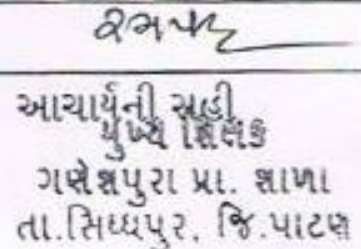 આચાર્યની સહી
મુખ્ય શિક્ષક
ગણેશપુરા પ્રા. શાળા
તા.સિધ્ધપુર. જિ.પાટણ